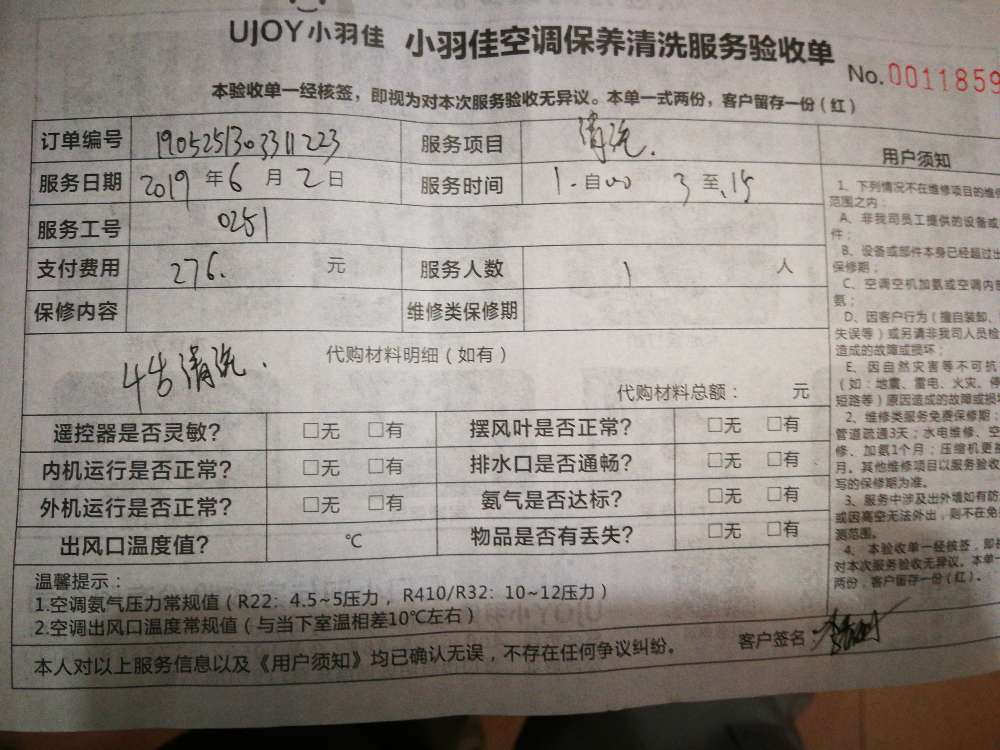 UJOY小羽佳 小羽佳空调保养清洗服务验收单
No.0011859
本验收单一经核签，即视为对本次服务验收无异议。本单一式两份，客户留存一份（红）
订单编号 1905251303311223 服务项目 清洗.
服务日期 2019年6月2日 服务时间 1. 自 3至 15
服务工号 0251
支付费用 276. 元 服务人数 1 人
保修内容 维修类保修期
代购材料明细（如有）
清洗.
代购材料总额： 元
遥控器是否灵敏? □无 □有 摆风叶是否正常? □无 □有
内机运行是否正常? □无 □有 排水口是否通畅? □无 □有
外机运行是否正常? □无 □有 氨气是否达标? □无 □有
出风口温度值? ℃ 物品是否有丢失? □无 □有
温馨提示：
1.空调氨气压力常规值（R22：4.5~5压力，R410/R32：10~12压力）
2.空调出风口温度常规值（与当下室温相差10℃左右）
客户签名：
本人对以上服务信息以及《用户须知》均已确认无误，不存在任何争议纠纷。
用户须知
1、下列情况不在维修项目的维
范围之内：
A、非我司员工提供的设备或
件；
B、设备或部件本身已经超过出
保修期；
C、空调空机加氨或空调内
氨；
D、因客户行为（擅自装卸、
失误等）或另请非我司人员检
造成的故障或损坏；
E、因自然灾害等不可抗
（如：地震、雷电、火灾、停
短路等）原因造成的故障或损坏
2、维修类服务免费保修期：
管道疏通3天；水电维修、空
修、加氨1个月；压缩机更
月。其他维修项目以服务验收
写的保修期为准。
3、服务中涉及出外墙如有防
或因高空无法外出，则不在免
测范围。
4、本验收单一经核签，即
对本次服务验收无异议。本单一
两份，客户留存一份（红）。